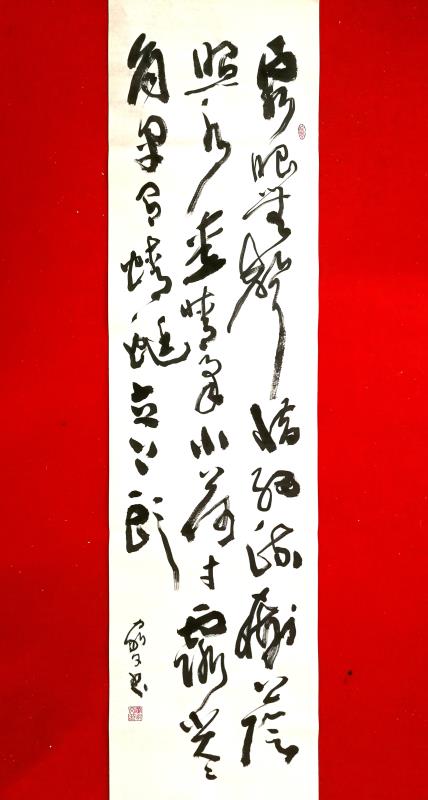 泉眼無聲惜細流樹蔭
照水愛晴柔小荷才露尖々
角早有蜻蜓立上頭